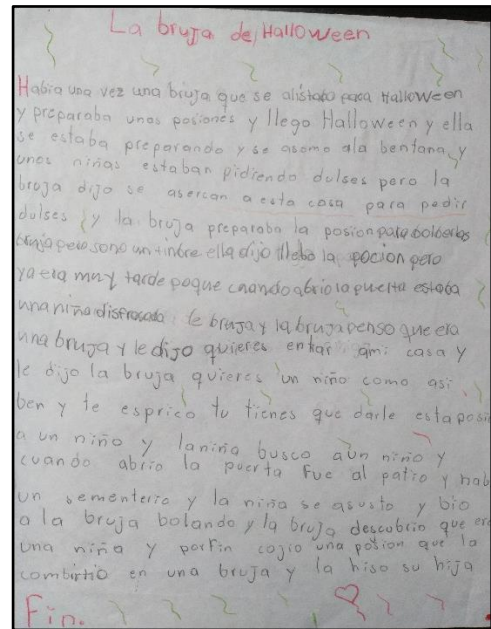 La bruja de Halloween
Habia una vez una bruja que se alistaba para Halloween
y preparaba unas posiones y llego Halloween y ella
se estaba preparando y se asomo ala bentana y
unos niñas estaban pidiendo dulses pero la
bruja dijo se asercan a esta casa para pedir
dulses y la bruja preparaba la posion para bolberlas
bruja pero sono un tinbre ella dijo llebo la pocion pero
ya era muy tarde poque cuando abrio la puerta estaba
una niña disfrasada de bruja y la bruja penso que era
una bruja y le dijo quieres entrar ami casa y
le dijo la bruja quieres un niño como asi
ben y te esprico tu tienes que darle esta posi
a un niño y la niña busco aun niño y
cuando abrio la puerta fue al patio y hab
un sementerio y la niña se asusto y bio
a la bruja bolando y la bruja descubrio que era
una niña y porfin cojio una posion que la
combirtio en una bruja y la hiso su hija
Fin.